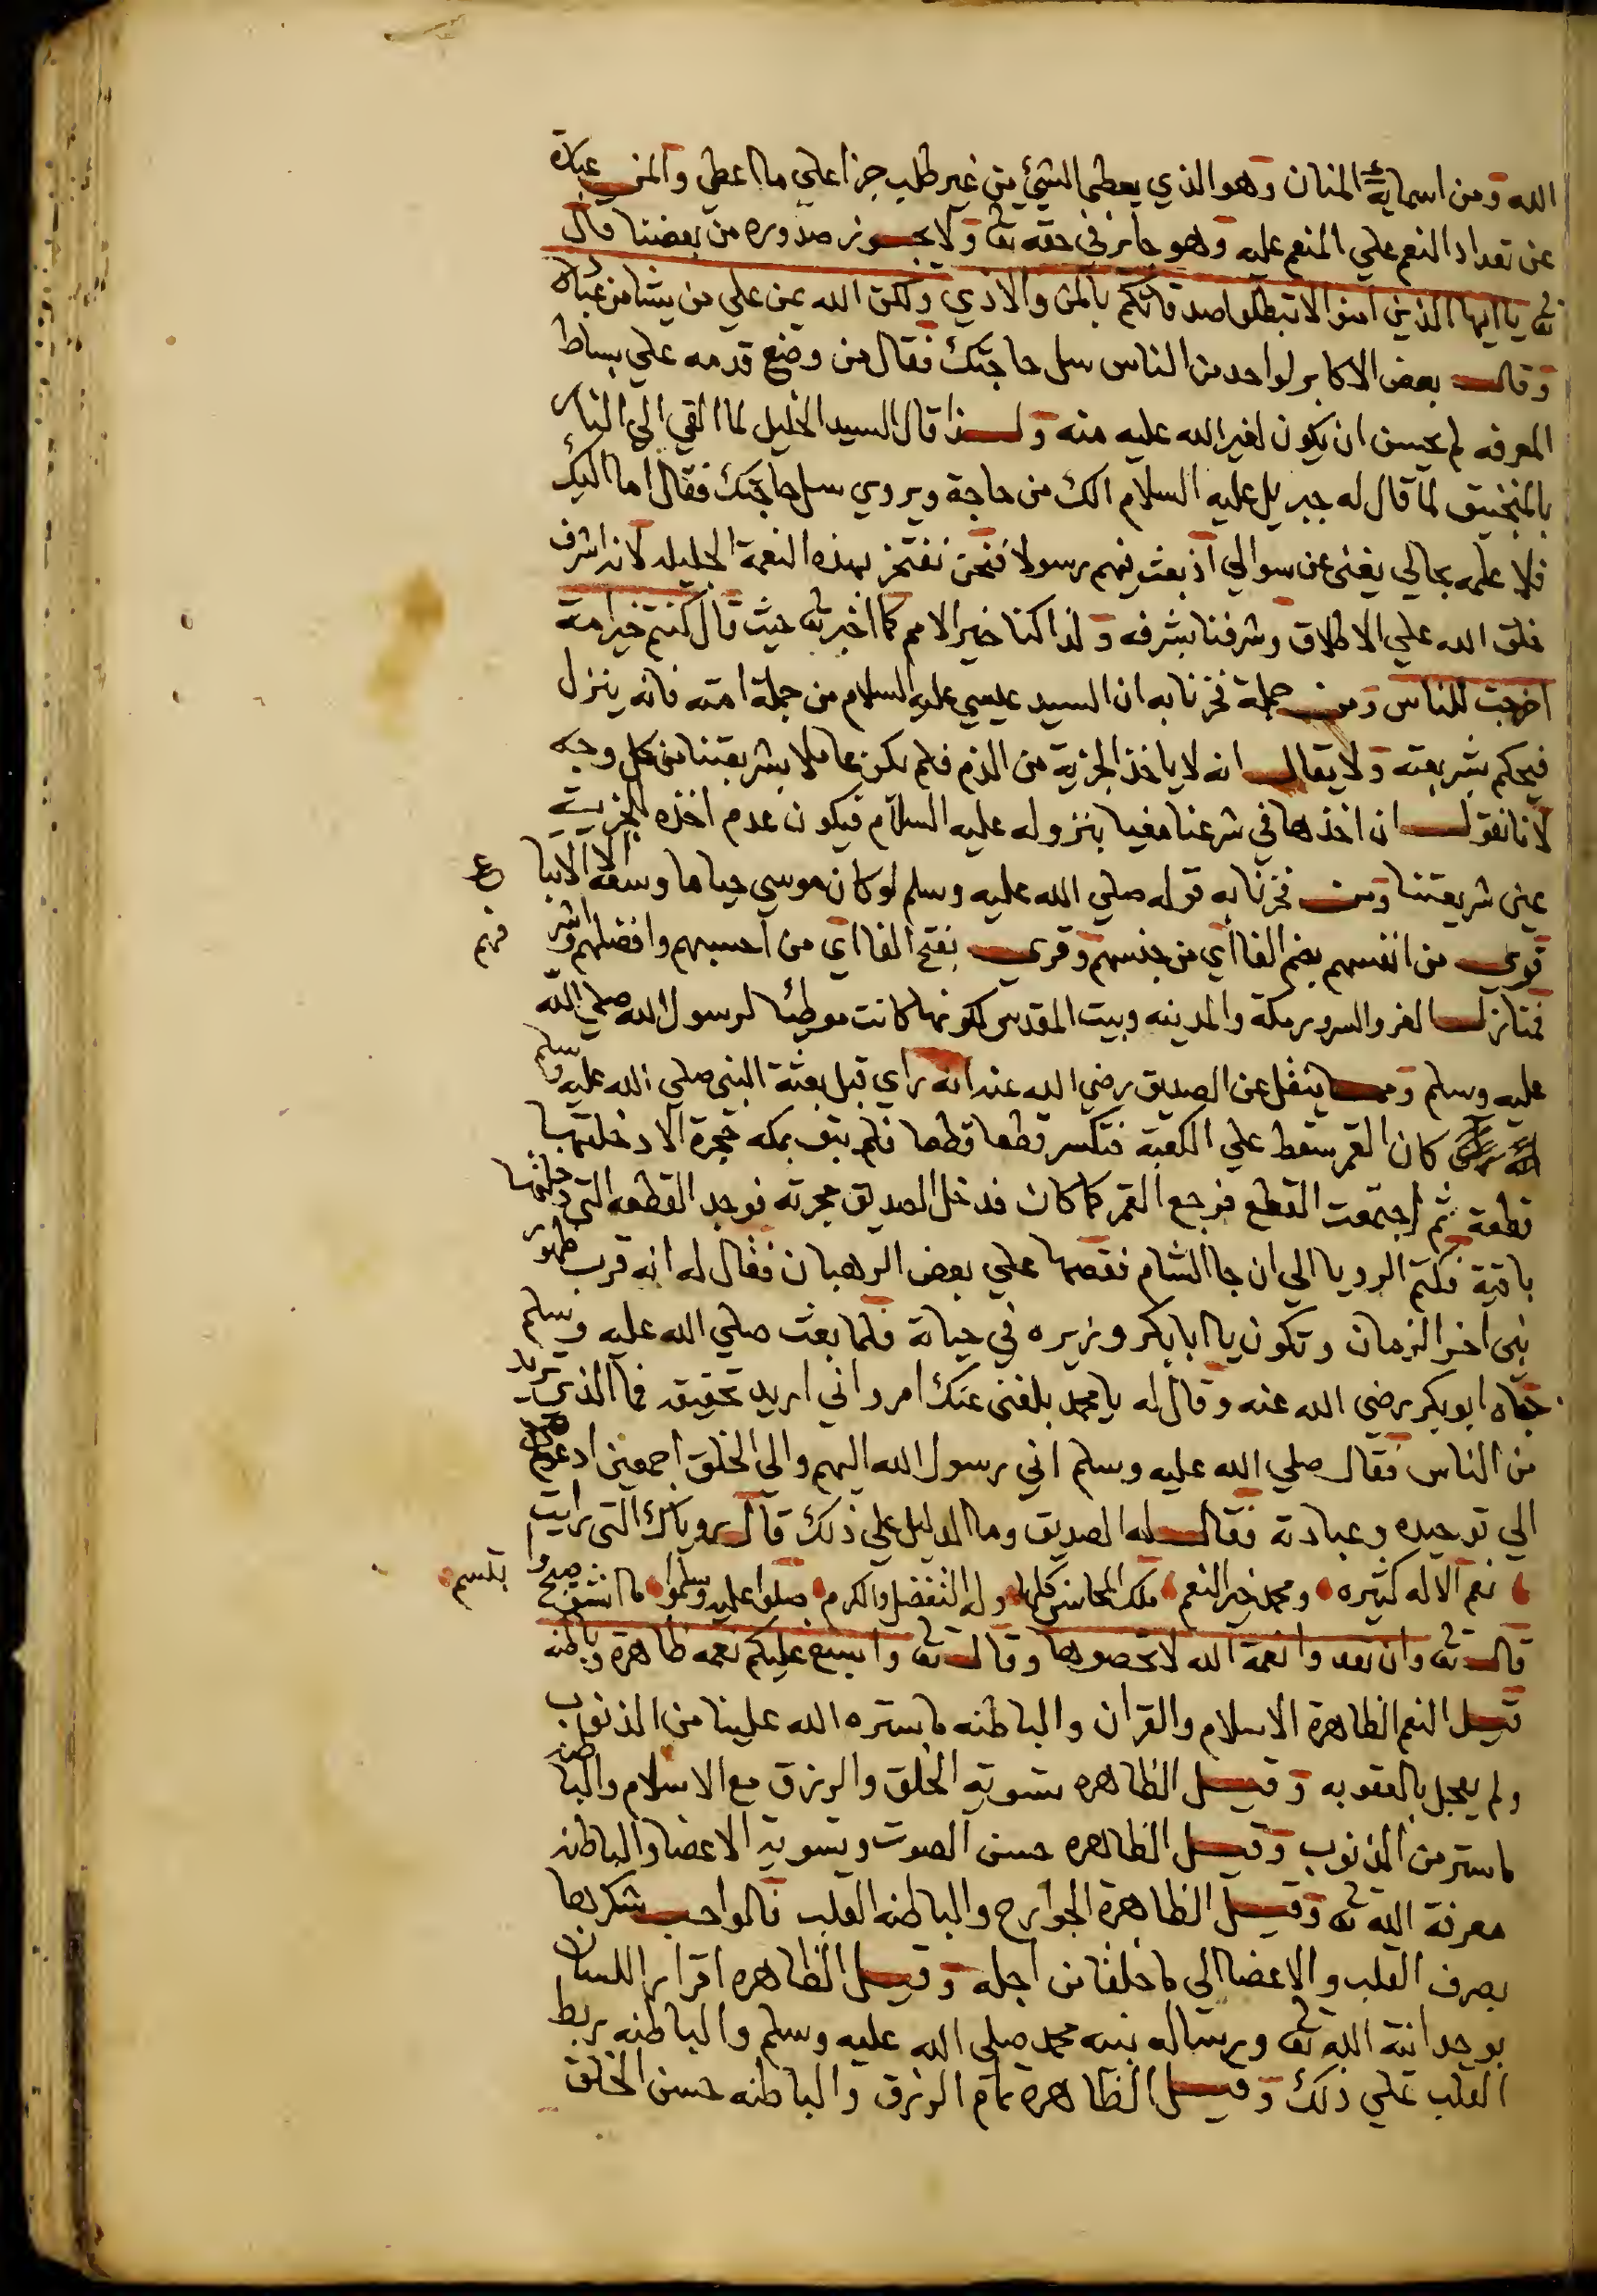 الله ومن اسمايه المنان وهو الذي يعطي الشيء من غير طلب جزا علي ما اعطي والمن عبارة
عن تعداد النعم علي المنعم عليه وهو جايز في حقه تعا ولا يجوز صدوره من بعضنا قال
تعا يا ايها الذين امنوا لا تبطلوا صدقاتكم بالمن والاذي ولكن الله يمن علي من يشا من عباده
وقال بعض الاكابر لواحد من الناس سل حاجتك فقال من وضع قدمه علي بساط
المعرفه لم يحسن ان يكون لغير الله عليه منه ولهذا قال السيد الخليل لما القي الي النار
بالمنجنيق لما قال له جبريل عليه السلام الك من حاجة ويروي سل حاجتك فقال اما اليك
فلا علمه بحالي يغني عن سوالي اذ بعث فيهم رسولا فنحن نفتخر بهذه النعمة الجليله لانه اشرف
خلق الله علي الاطلاق وشرفنا بشرفه ولذا كنا خير الامم كما اخبر تعا حيث قال كنتم خير امة
اخرجت للناس ومن جملة فخرنا به ان السيد عيسي عليه السلام من جملة امته فانه ينزل
فيحكم بشريعته ولا يقال انه لا ياخذ الجزية من الذم فلم يكن عاملا بشريعتنا من كل وجه
لانا نقول ان اخذها في شرعنا مغيا بنزوله عليه السلام فيكون عدم اخذه الجزية
عين شريعتنا ومن فخرنا به قوله صلي الله عليه وسلم لو كان موسي حيا ما وسعه الا اتبا ع
قوي من انفسهم بضم الفا اي من جنسهم وقري بفتح الفا اي من احسبهم وافضلهم واشر فهم
فتنازل الفخر والسرور مكة والمدينه وبيت المقدس لكونها كانت موطيا لرسول الله صلي الله
عليه وسلم ومما ينقل عن الصديق رضي الله عنه انه راي قبل بعثة النبي صلي الله عليه وسلم
كان القمر سقط علي الكعبة فتكسر قطعا قطعا فلم يبق بمكه حجرة الا دخلتها
قطعة ثم اجتمعت القطع فرجع القمر كما كان فدخل الصديق حجرته فوجد القطعه التي دخلتها
باقية فكتم الرويا الي ان جا الشام فقصها علي بعض الرهبان فقال له انه قرب ظهور
نبي اخر الزمان وتكون يا ابا بكر وزيره في حياته فلما بعث صلي الله عليه وسلم
جاه ابو بكر رضي الله عنه وقال له يا محمد بلغني عنك امر واني اريد تحقيقه فما الذي تريد
من الناس فقال صلي الله عليه وسلم اني رسول الله اليهم والي الخلق اجمعين ادعوهم
الي توحيده وعبادته فقال له الصديق وما الدليل علي ذلك قال روياك التي رايت
نعم الاله كثيره ومحمد خير النعم ملك المحاسن كلها وله التفضل والكرم صلوا عليه وسلموا ما انشق صبح وا بتسم
قال تعا وان تعدوا نعمة الله لا تحصوها وقال تعا واسبغ عليكم نعمه ظاهرة وباطنه
قيل النعم الظاهرة الاسلام والقران والباطنه ما ستره الله علينا من الذنوب
ولم يعجل بالعقوبه وقيل الظاهره تسوية الخلق والرزق مع الاسلام والباطنه
ما ستر من الذنوب وقيل الظاهره حسن الصوت وتسوية الاعضا والباطنه
معرفة الله تعا وقيل الظاهرة الجوارح والباطنه القلب فالواجب شكرها
بصرف القلب والاعضا الي ما خلقا من اجله وقيل الظاهره اقرار اللسان
بوحدانية الله تعا وبرسالة نبيه محمد صلي الله عليه وسلم والباطنه ربط
القلب علي ذلك وقيل الظاهرة تمام الرزق والباطنه حسن الخلق